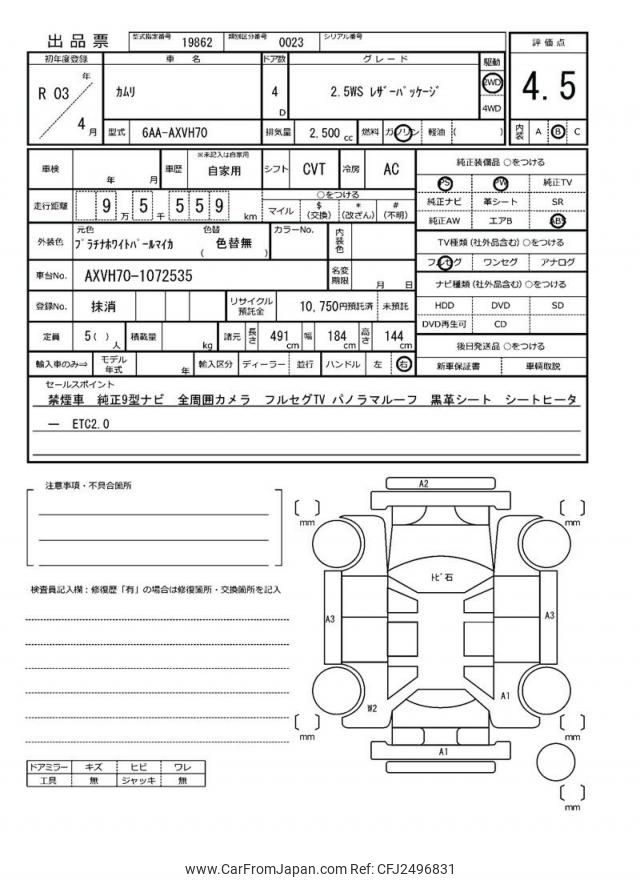 出品票 型式指定番号 19862 類別区分番号 0023 シリアル番号
初年度登録 車名 ドア数 グレード 駆動 評価点
R 03 年 4 月 カムリ 4 D 2.5WS ﾚｻﾞｰﾊﾟｯｹｰｼﾞ 2WD 4WD 4.5
型式 6AA-AXVH70 排気量 2,500 cc 燃料 ガソリン 軽油 ( ) 内装 A B C
車検 年 月 車歴 ※未記入は自家用 自家用 シフト CVT 冷房 AC 純正装備品 ○をつける
PS PW 純正TV
走行距離 9 万 5 千 5 5 9 km ○をつける
マイル $ (交換) * (改ざん) # (不明)
純正ナビ 革シート SR
純正AW エアB ABS
外装色 元色 ﾌﾟﾗﾁﾅﾎﾜｲﾄﾊﾟｰﾙﾏｲｶ 色替 ( 色替無 ) カラーNo. 内装色
TV種類 (社外品含む) ○をつける
フルセグ ワンセグ アナログ
車台No. AXVH70-1072535 名変期限 月 日
ナビ種類 (社外品含む) ○をつける
登録No. 抹消 リサイクル預託金 10,750円預託済 未預託
HDD DVD SD
DVD再生可 CD
定員 5( ) 人 積載量 kg 諸元 長さ 491 cm 幅 184 cm 高さ 144 cm
後日発送品 ○をつける
輸入車のみ⇒ モデル年式 年 輸入区分 ディーラー 並行 ハンドル 左 右 新車保証書 車輌取説
セールスポイント
禁煙車 純正9型ナビ 全周囲カメラ フルセグTV パノラマルーフ 黒革シート シートヒータ
ー ETC2.0
注意事項・不具合箇所
A2
mm
mm
検査員記入欄：修復歴「有」の場合は修復箇所・交換箇所を記入
ﾄﾋﾞ石
A3
A3
W2
A1
mm
mm
A1
ドアミラー キズ ヒビ ワレ
工具 無 ジャッキ 無
mm
www.CarFromJapan.com Ref: CFJ2496831